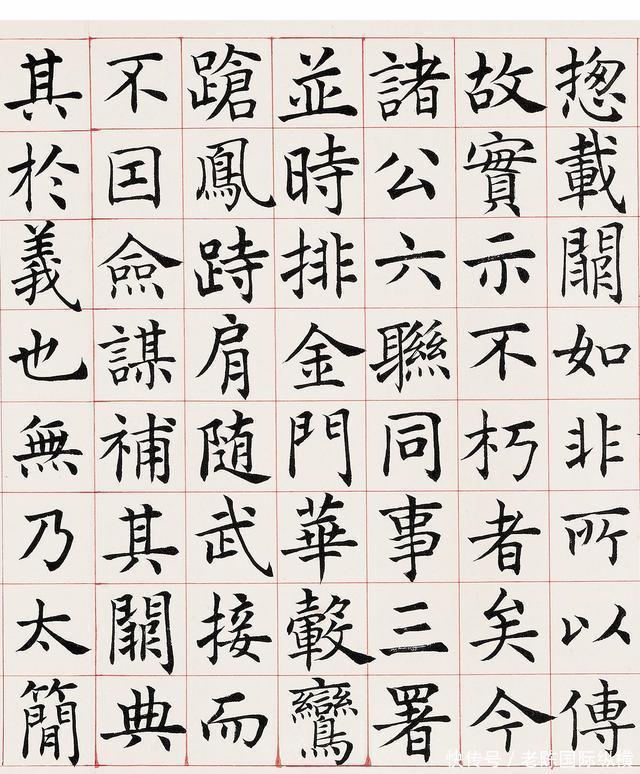 揔載闕如非所以傳
故實示不朽者矣今
諸公六聯同事三署
並時排金門華轂鸞
蹌鳳跱肩随武接而
不囙僉謀補其闕典
其於義也無乃太簡
快传号 / 老陈国际纵横